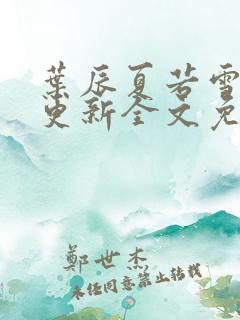 葉辰夏若雪
更新全文免
鄭世杰
未經同意禁止轉載